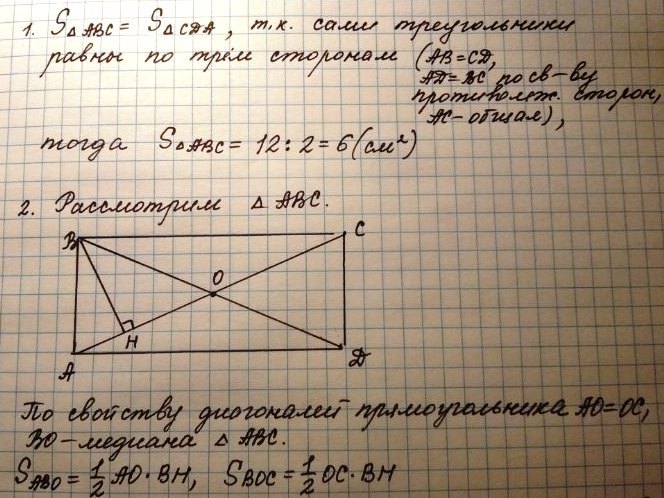 1. S△ABC = S△CDA, т.к. сами треугольники
равны по трём сторонам (AB=CD,
AD=BC по св-ву
противолеж. сторон,
AC-общая),
тогда S△ABC = 12 : 2 = 6 (см²)
2. Рассмотрим △ ABC.
B
C
O
H
A
D
По свойству диогоналей прямоугольника AO=OC,
BO-медиана △ ABC.
S ABO = 1/2 AO · BH, S BOC = 1/2 OC · BH